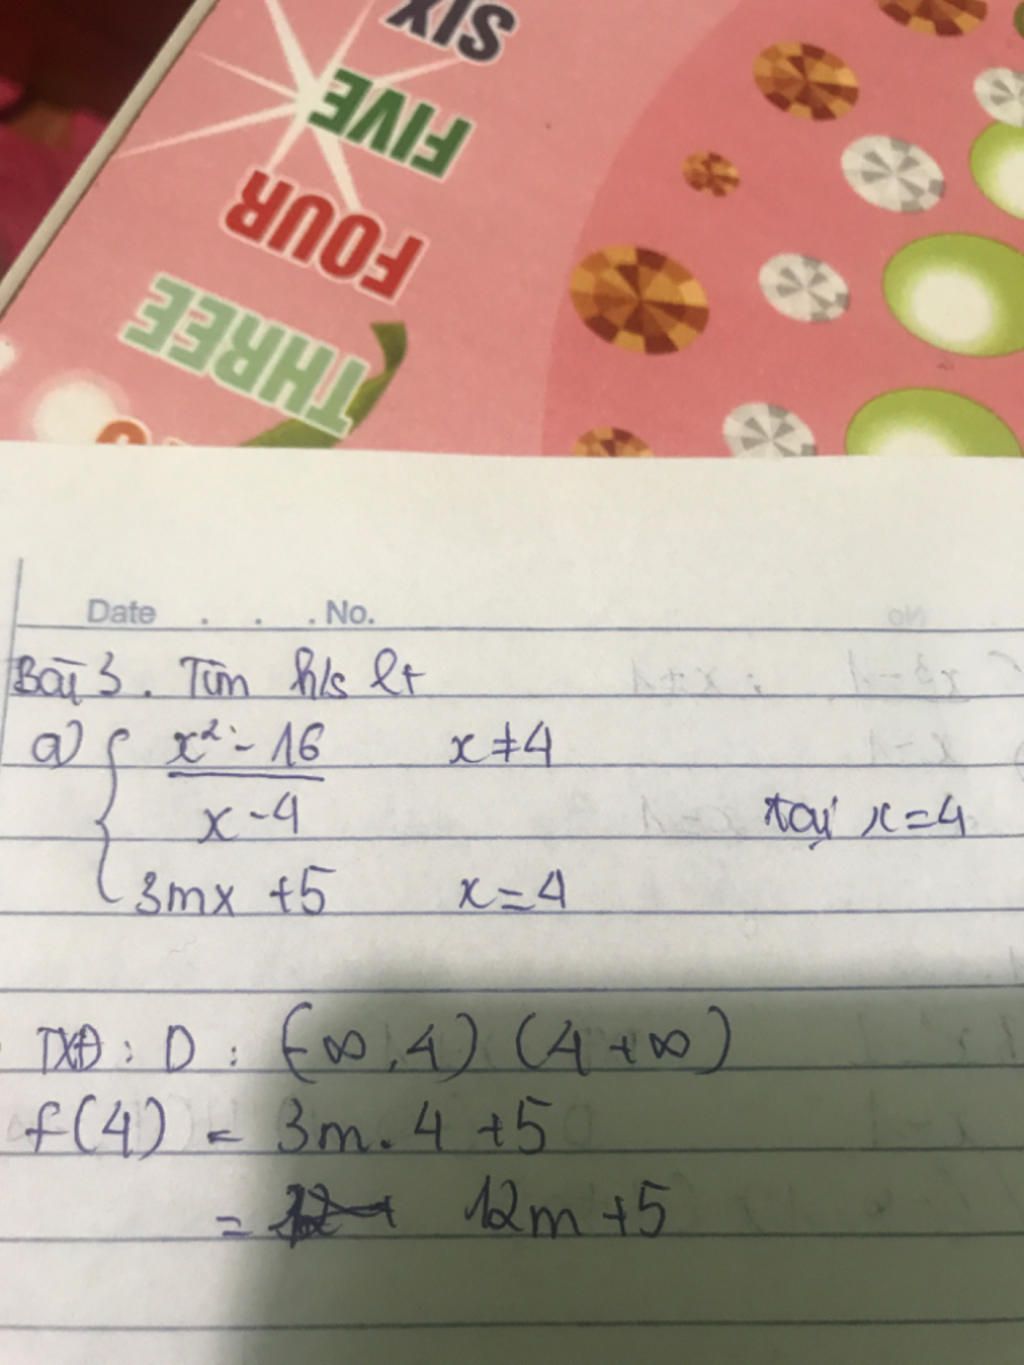 SIX
FIVE
FOUR
THREE
Date . . . No.
Bài 3. Tìm h/s lt
a) { x² - 16 x ≠ 4
x - 4
tại x = 4
3mx + 5 x = 4
TXĐ : D : (-∞, 4) (4 + ∞)
f(4) = 3m . 4 + 5
= 12m + 5